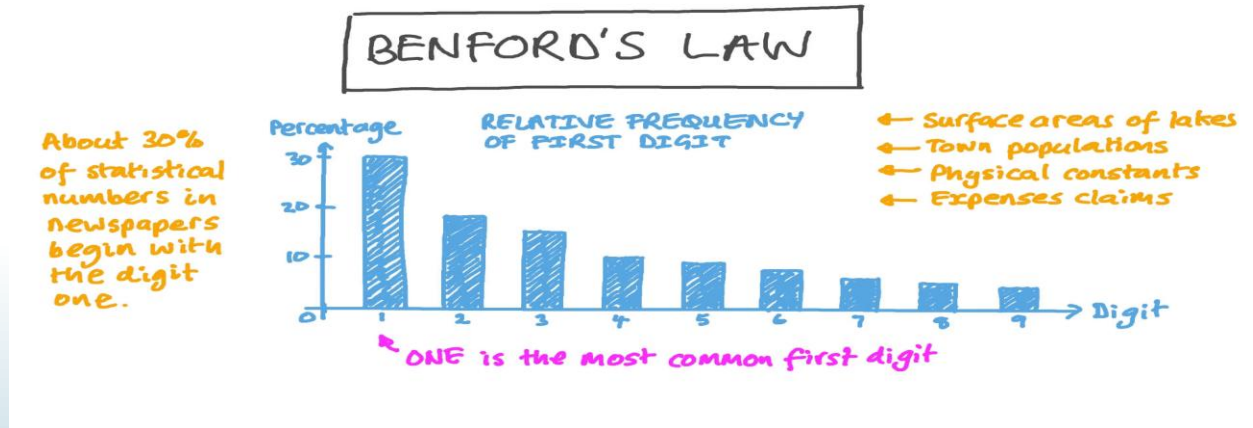 BENFORD'S LAW
About 30%
of statistical
numbers in
newspapers
begin with
the digit
one.
Percentage
RELATIVE FREQUENCY
OF FIRST DIGIT
30
20
10
0
1 2 3 4 5 6 7 8 9
Digit
← Surface areas of lakes
← Town populations
← Physical constants
← Expenses claims
ONE is the most common first digit